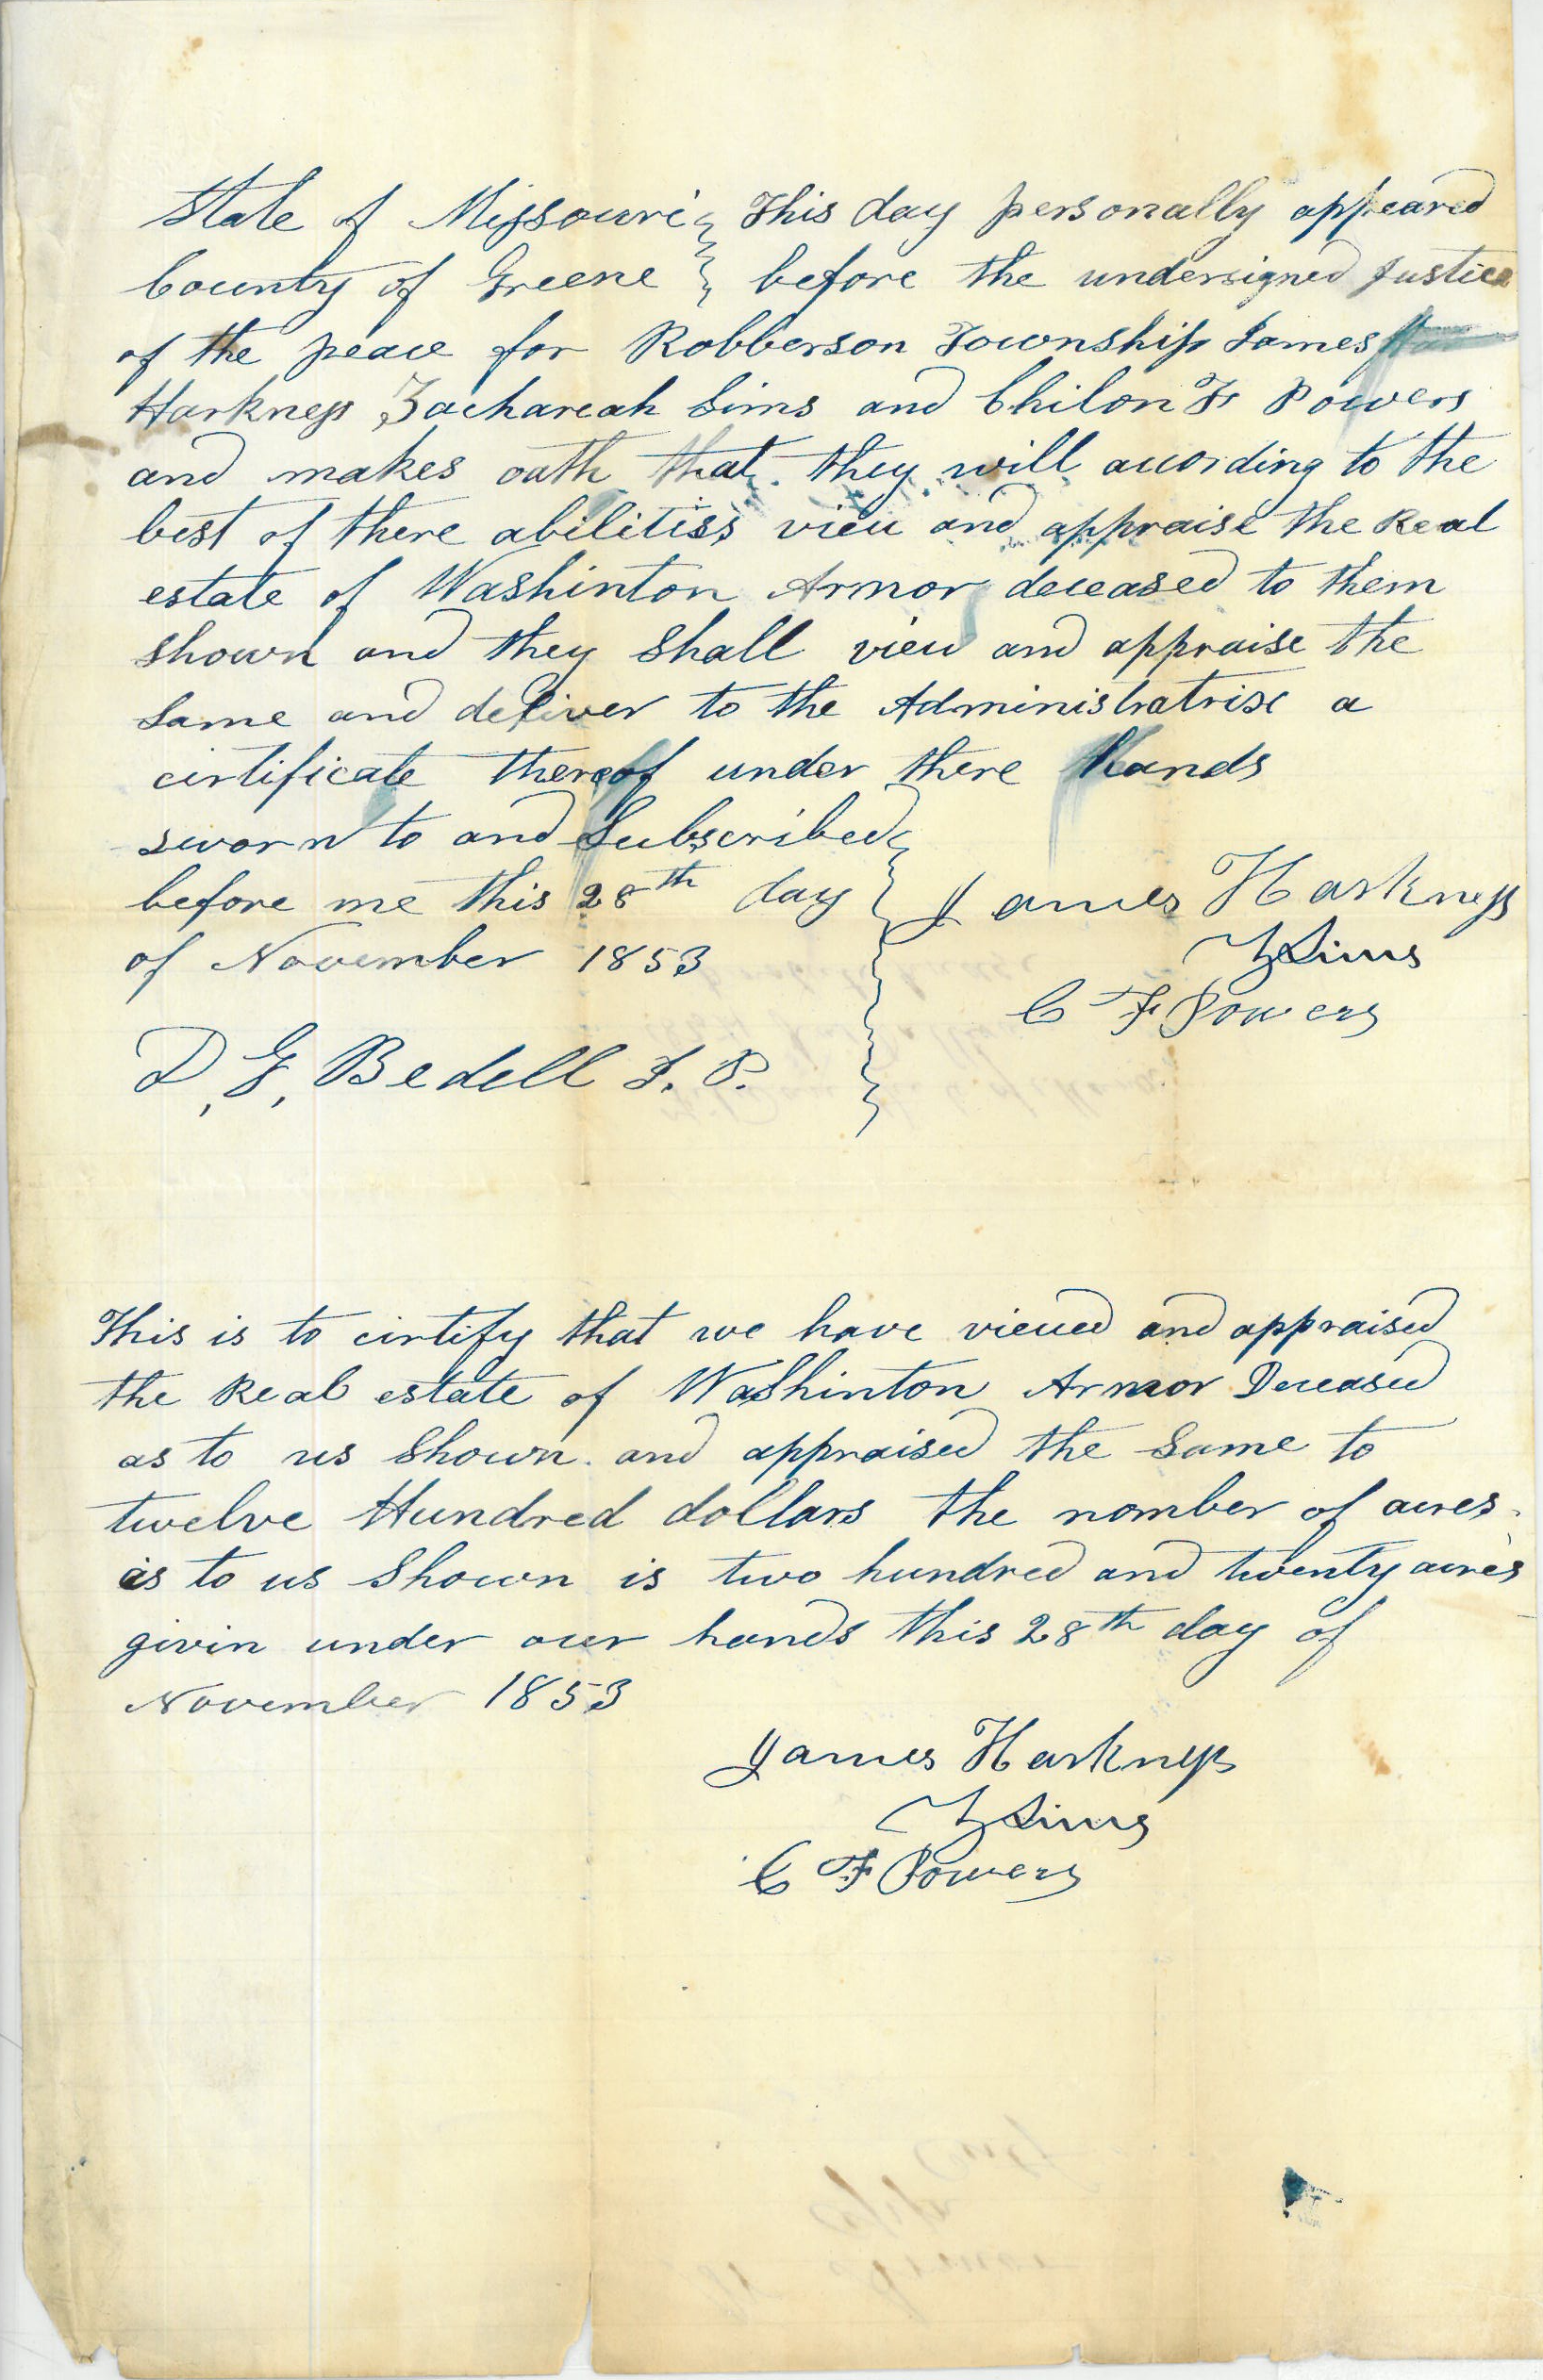 State of Missouri } This day personally appeared
County of Greene } before the undersigned Justice
of the peace for Robberson Township James
Harkness Zachareah Sims and Chilon F Powers
and makes oath that they will acording to the
best of there abilitiss view and appraise the Real
estate of Washinton Armor deceased to them
shown and they shall view and appraise the
same and deliver to the Administratrix a
cirtificate thereof under there hands
sworn to and Subscribed
before me this 28th day
of November 1853
James Harkness
Z Sims
C F Powers
D, G, Bedell J. P.
This is to cirtify that we have viewed and appraised
the Real estate of Washinton Armor Deceased
as to us Shown and appraised the Same to
twelve Hundred dollars the nomber of acres
as to us Shown is two hundred and twenty acres
givin under our hands this 28th day of
November 1853
James Harkness
Z Sims
C F Powers